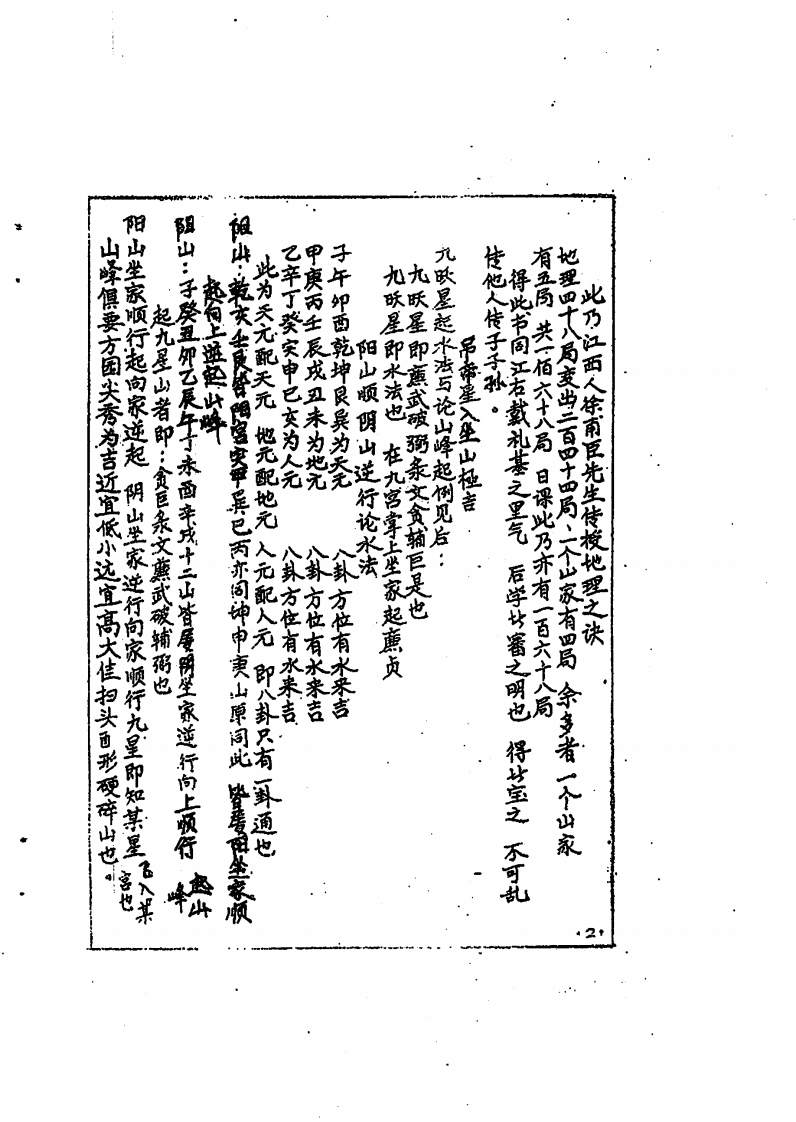 此乃江西人徐甫臣先生传授地理之诀
地理四十八局变出二百四十四局、一个山家有四局 余多者一个山家
有五局 共一佰六十八局 日课此乃亦有一百六十八局
得此书同江右戴礼基之里气 后学此審之明也 得此宝之 不可乱
传他人传子子孙。
吊帝星入坐山極吉
九昳星起水法与论山峰起例见后：
九昳星即廉武破弼条文贪辅巨是也
九昳星即水法也 在九宫掌上坐家起廉贞
阳山顺阴山逆行论水法
子午卯酉乾坤艮巽为天元 八卦方位有水来吉
甲庚丙壬辰戌丑未为地元 八卦方位有水来吉
乙辛丁癸寅申巳亥为人元 八卦方位有水来吉
此为天元配天元 地元配地元 人元配人元 即八卦只有一卦通也
阳山：乾亥壬艮皆阳宫寅甲巽巳丙亦同坤申庚山原同此 皆属阳坐家顺
起向上逆起山峰
阴山：子癸丑卯乙辰午丁未酉辛戌十二山皆属阴坐家逆行向上顺行 起山峰
起九星山者即：贪巨条文廉武破辅弼也
阳山坐家顺行起向家逆起 阴山坐家逆行向家顺行九星即知某星飞入某宫也
山峰俱要方园尖秀为吉近宜低小远宜高大佳扫头面形硬碎山也。
·2·